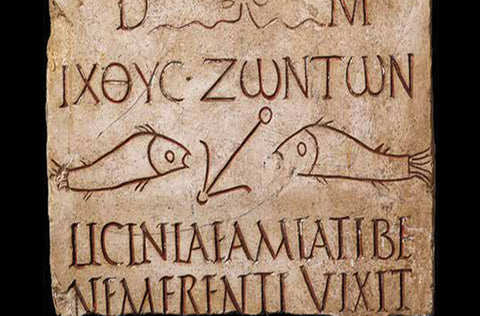 D M
ΙΧΘΥC · ΖΩΝΤΩΝ
LICINIAE AMIATI BE
NEMERENTI VIXIT